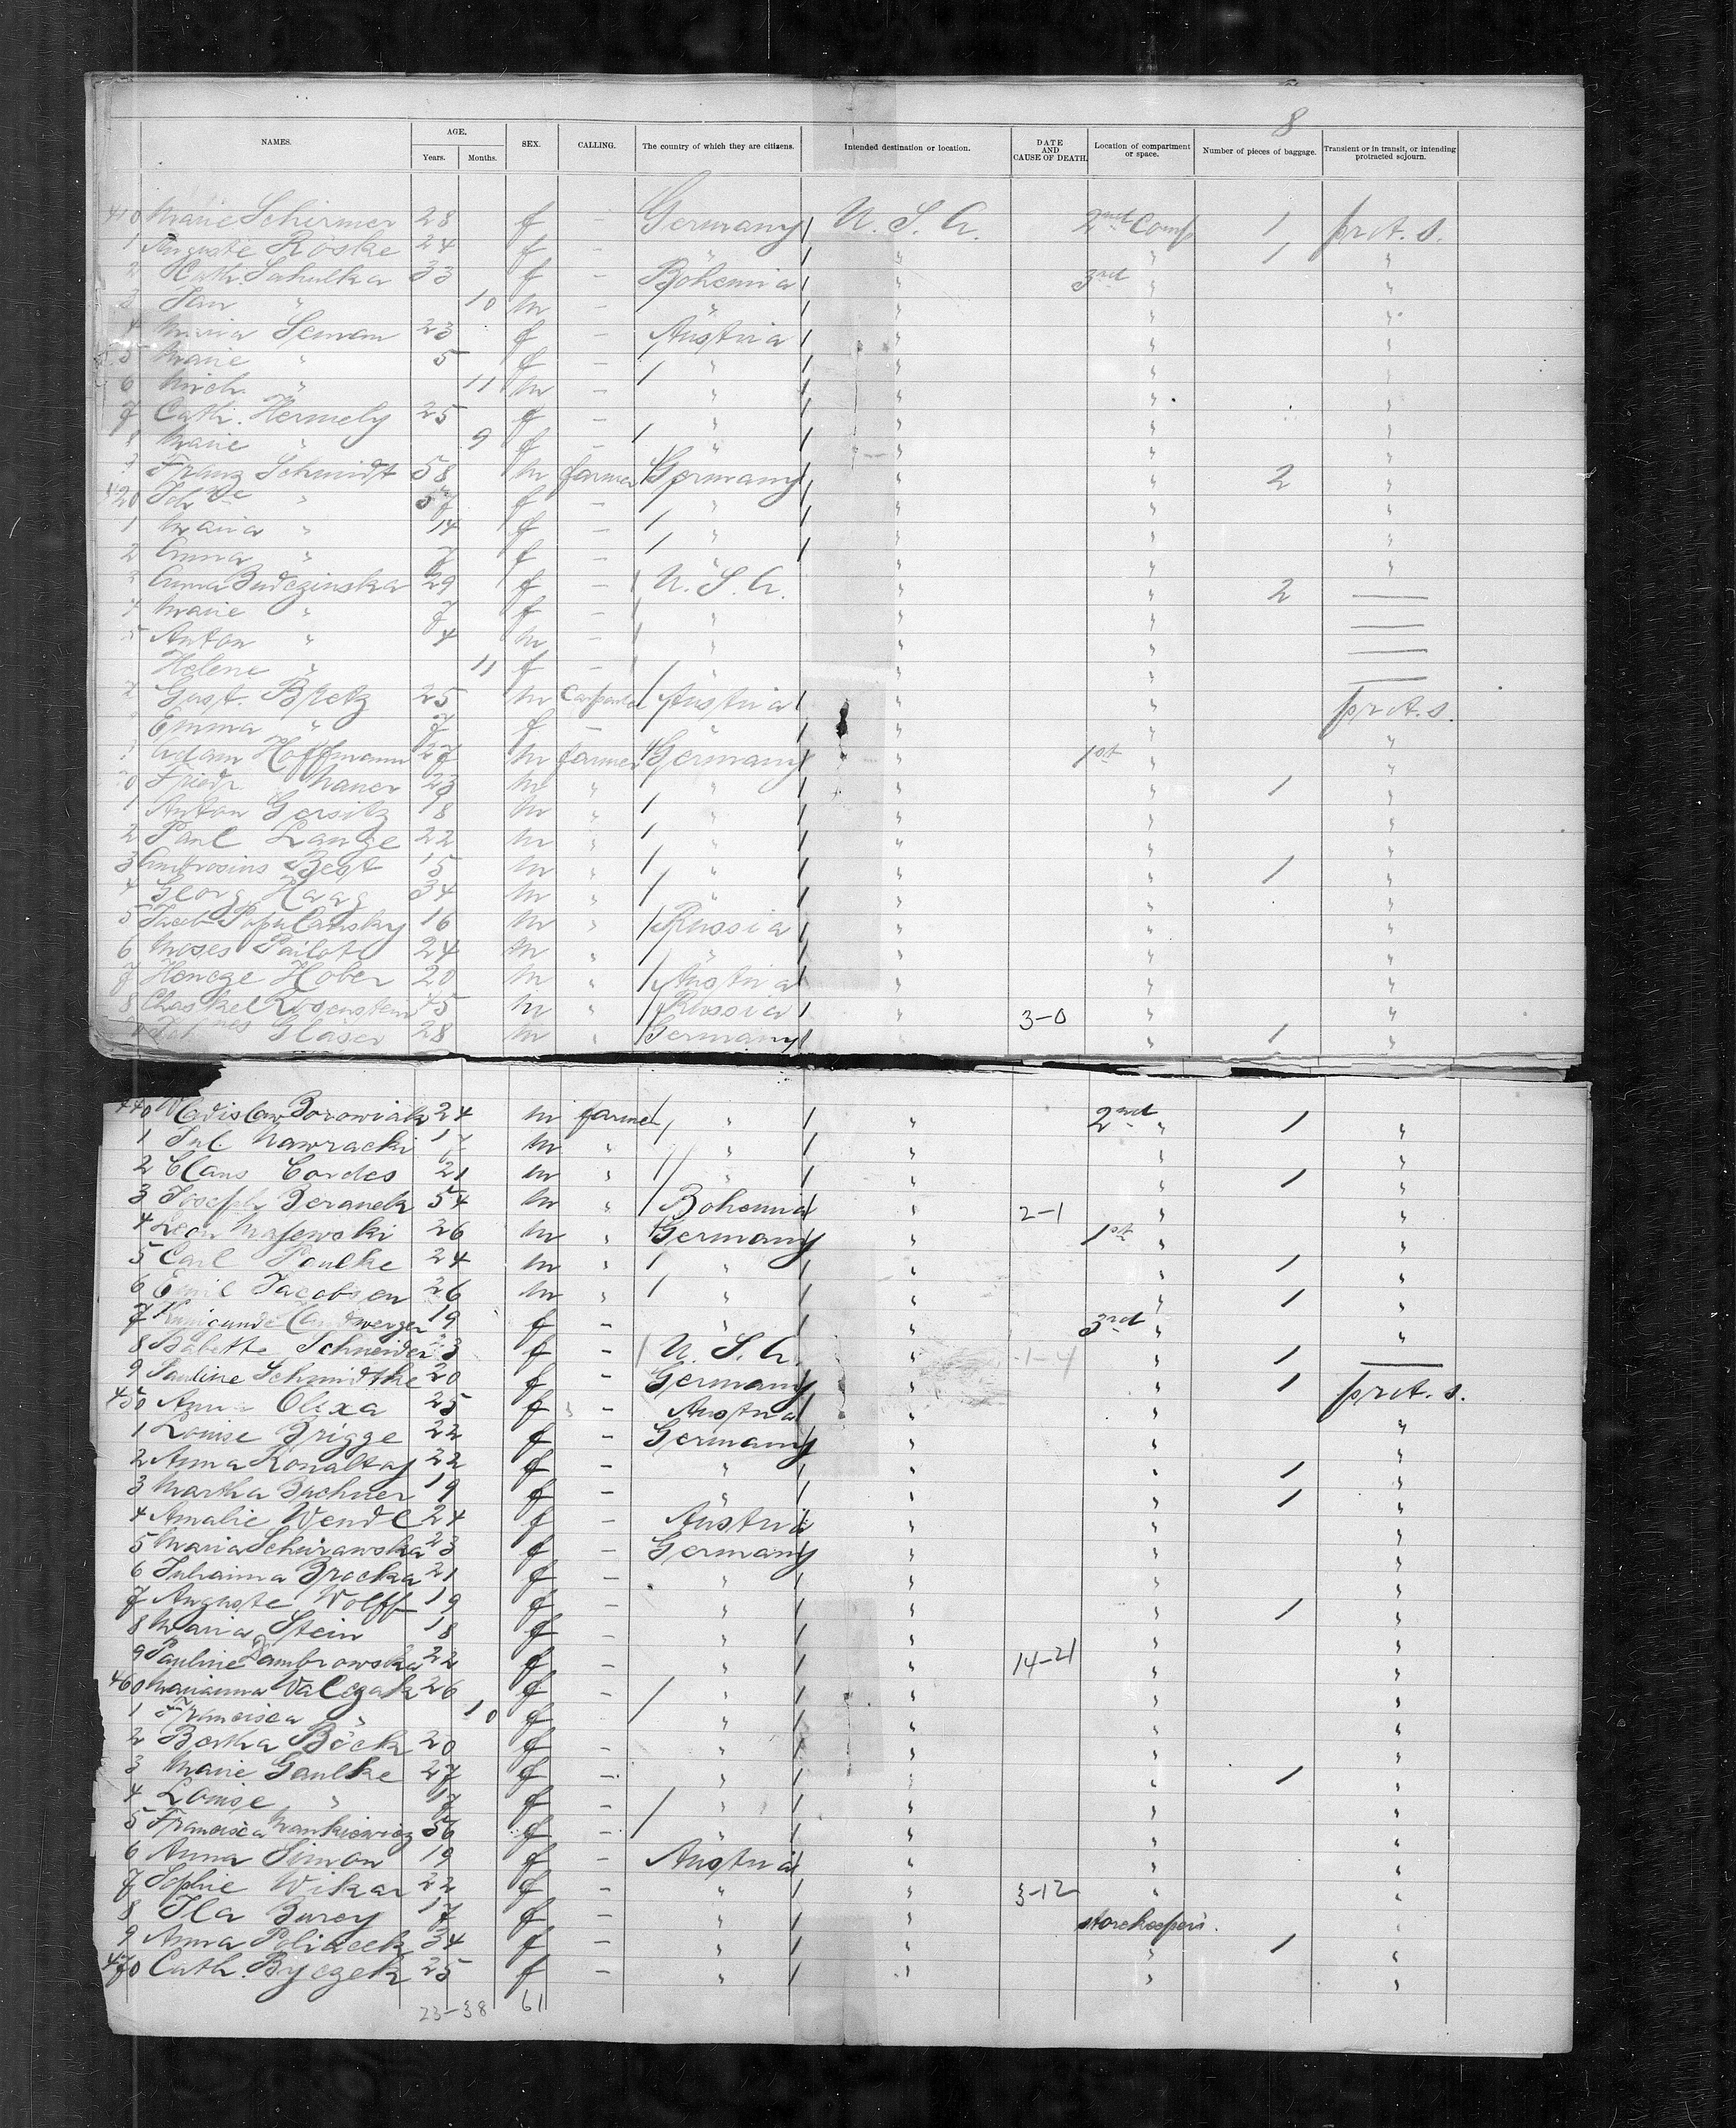 8
NAMES. AGE. Years. Months. SEX. CALLING. The country of which they are citizens. Intended destination or location. DATE AND CAUSE OF DEATH. Location of compartment or space. Number of pieces of baggage. Transient or in transit, or intending protracted sojourn.
410 Marie Schirmer 28 f — Germany U.S.A. 2nd Comp 1 prot. s.
1 Auguste Roske 24 f — " " " 1 "
2 Cath. Sahulka 33 f — Bohemia " 3rd " "
3 Jan " 10 m — " " " "
4 Maria Seman 23 f — Austria " " "
5 Marie " 5 f — " " " "
6 Mich. " 11 m — " " " "
7 Cath. Hermely 25 f — " " " "
8 Marie " 9 f — " " " "
9 Franz Schmidt 58 m farmer Germany " " 2 "
420 " 57 f — " " " "
1 Maria " 14 f — " " " "
2 Anna " 7 f — " " " "
3 Anna Budczinska 29 f — U.S.A. " " 2 —
4 Marie " 7 f — " " " —
5 Anton " 4 m — " " " —
Helene " 11 f — " " " —
7 Gust. Bretz 25 m Austria " " prot. s.
Emma " 7 f — " " " "
Adam Hoffmann 27 m farmer Germany " 1st " "
0 Friedr. Maner 23 m " " " " 1 "
1 Anton Gersitz 18 m " " " " "
2 Paul Lange 22 m " " " " "
3 Ambrosius Best 15 m " " " " 1 "
4 Georg Haag 34 m " " " " "
5 Jacob Popu Lansky 16 m " Russia " " "
6 Moses Pailote 24 m " " " " "
7 Hencze Hober 20 m " Austria " " "
8 Chaskel Rosenstein 45 m " Russia " " "
Gläser 28 m " Germany " 3-0 " 1 "
440 Wladislaw Borowiak 24 m farmer " " 2nd " 1 "
1 Jul. Nawracki 17 m " " " " "
2 Claus Cordes 21 m " " " " 1 "
3 Joseph Beranek 54 m " Bohemia " 2-1 " "
4 Leon Majewski 26 m " Germany " 1st " "
5 Carl Paulke 24 m " " " " 1 "
6 Emil Jacobsen 26 m " " " " 1 "
7 Kunigunde Landwerger 19 f — " " 3rd " "
8 Babette Schneider 23 f — U.S.A. " 1-4 " 1 —
9 Pauline Schmidtke 20 f — Germany " " 1 prot. s.
450 Anna Olexa 25 f — Austria " " "
1 Louise Brigge 22 f — Germany " " "
2 Anna Konaltaj 22 f — " " " 1 "
3 Martha Buchner 19 f — " " " 1 "
4 Amalie Wendl 24 f — Austria " " "
5 Maria Schurawska 23 f — Germany " " "
6 Julianna Bracka 21 f — " " " "
7 Auguste Wolff 19 f — " " " 1 "
8 Maria Stein 18 f — " " " "
9 Pauline Dambrowska 22 f — " " 14-21 " "
460 Marianna Walczak 26 f — " " " "
1 Francisca " 10 f — " " " "
2 Bertha Böck 20 f — " " " "
3 Marie Gaulke 27 f — " " " 1 "
4 Louise " 17 f — " " " "
5 Francisca Mankiewicz 56 f — " " " "
6 Anna Simon 19 f — Austria " " "
7 Sophie Wikar 22 f — " " 3-12 " "
8 Ila Burey 17 f — " " storekeepers. "
9 Anna Poliacek 34 f — " " " 1 "
470 Cath. Byczek 25 f — " " " "
23-38 61